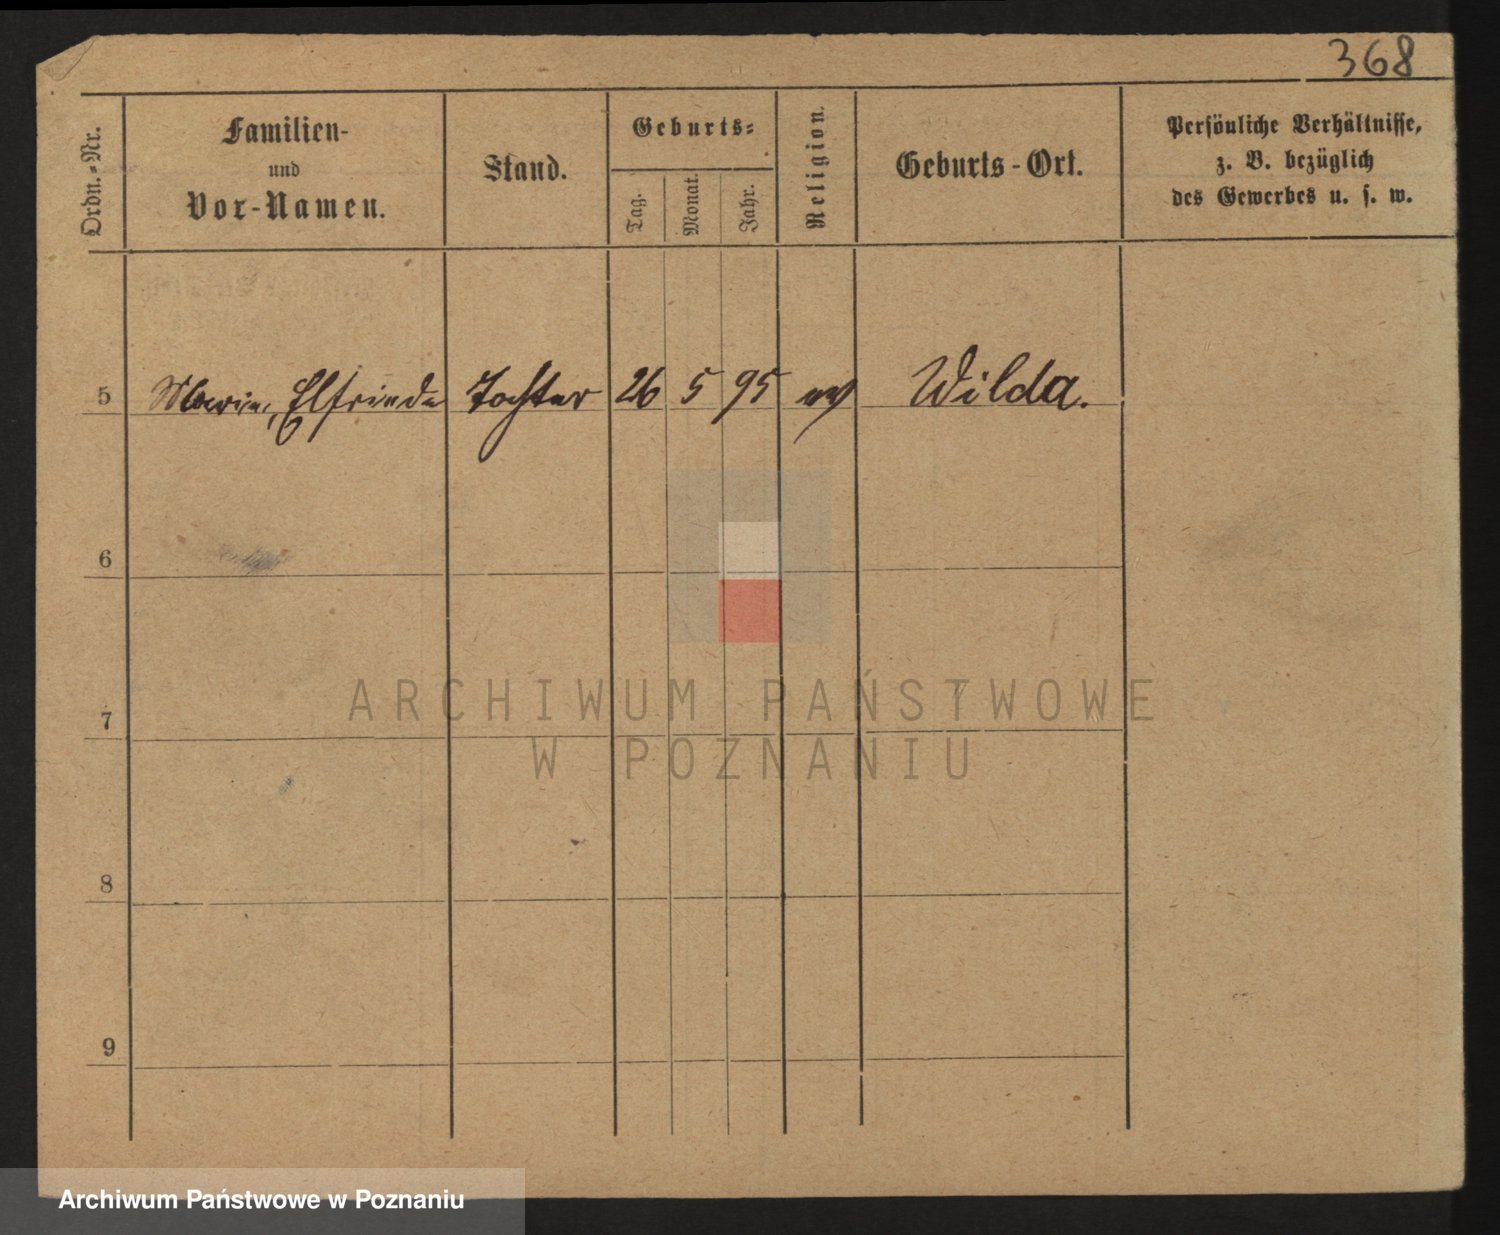 368
Ordn.-Nr.
Familien-
und
Vor-Namen.
Stand.
Geburts-
Tag.
Monat.
Jahr.
Religion.
Geburts-Ort.
Persönliche Verhältnisse,
z. B. bezüglich
des Gewerbes u. s. w.
5 Marie, Elfriede Tochter 26 5 95 ev Wilda.
6
7
8
9
ARCHIWUM PAŃSTWOWE
W POZNANIU
Archiwum Państwowe w Poznaniu